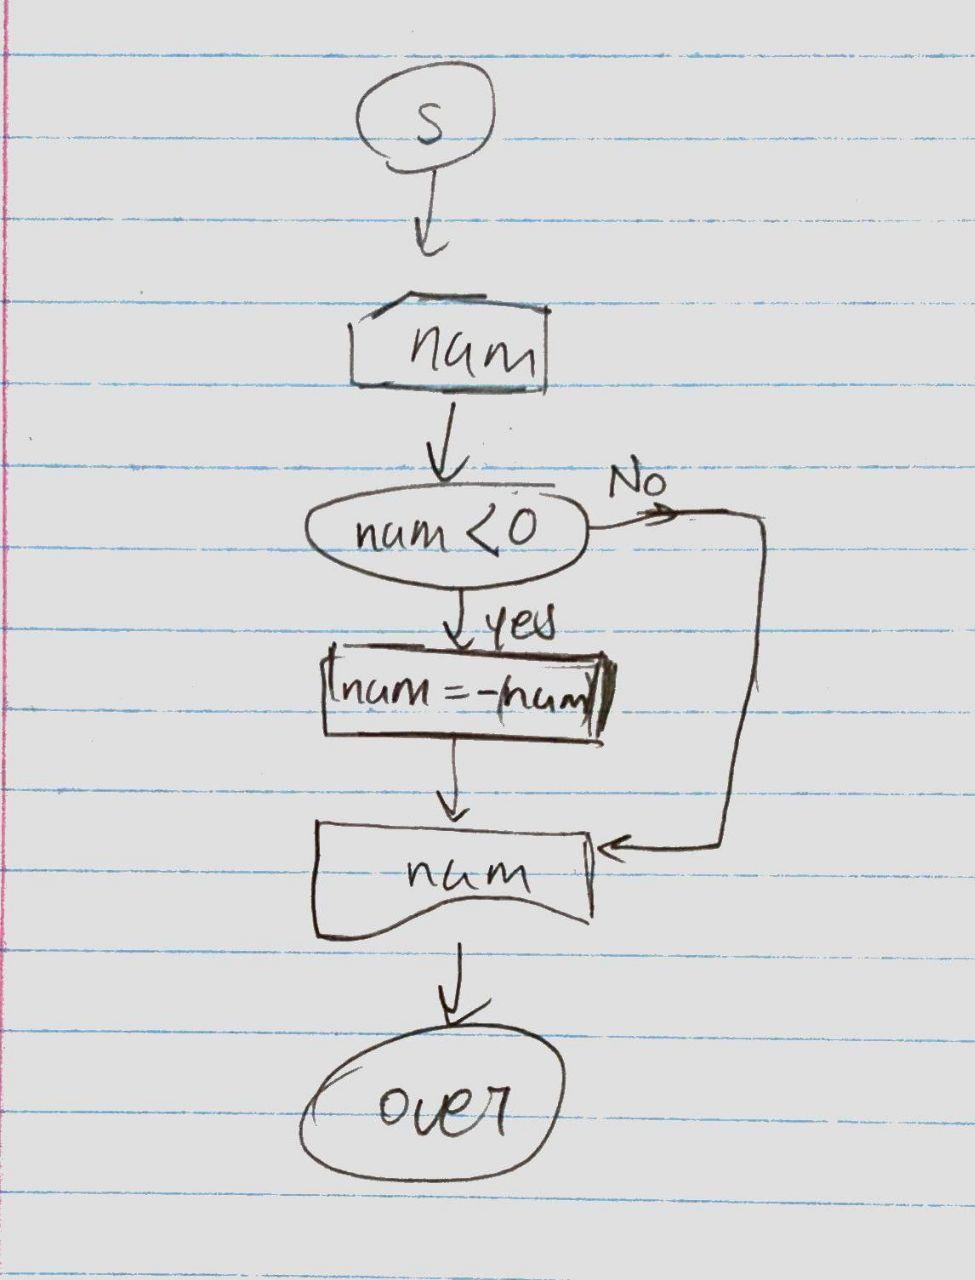 S
num
num < 0
No
yes
num = -(num)
num
over